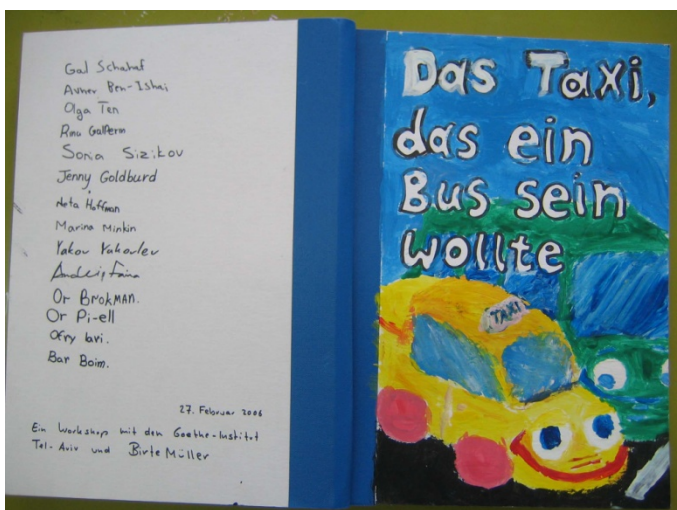 Gal Schahaf
Avner Ben-Ishai
Olga Ten
Sonia Sizikov
Jenny Goldburd
Neta Hoffman
Marina Minkin
Yakov Yakovlev
Or BROKMAN.
Or Pi-ell
Ofry
Bar Boim.
27. Februar 2006
Ein Workshop mit den Goethe-Institut
Tel-Aviv und Birte Müller
Das Taxi,
das ein
Bus sein
wollte
TAXI